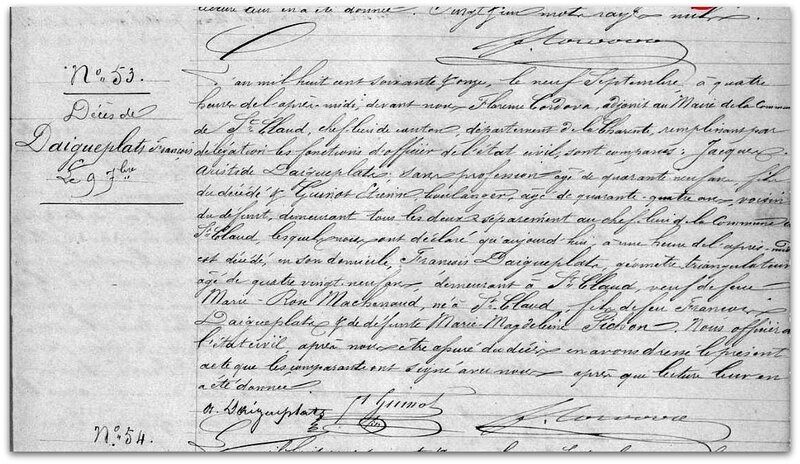 lecture leur en a été donnée. Vingt un mots rayés nuls.
N.° 53.
Décès de
Daigueplats François
Le 9 7bre
L'an mil huit cent soixante & onze, le neuf Septembre, à quatre
heures de l'après-midi, devant nous Florence Cordova, adjoint au Maire de la Commune
de St. Claud, chef lieu de canton, département de la Charente, remplissant par
délégation les fonctions d'officier de l'état civil, sont comparus: Jacques
Aristide Daigueplats sans profession âgé de quarante neuf ans, fils
du décédé & Guinot Etienne, boulanger, âgé de quarante-quatre ans, voisin
du défunt, demeurant tous les deux séparement au chef lieu de la Commune de
St. Claud, lesquels nous ont déclaré qu'aujourd'hui, à une heure de l'après-midi
est décédé, en son domicile, François Daigueplats, géomètre triangulateur
âgé de quatre vingt neuf ans, demeurant à St. Claud, veuf de feue
Marie-Rose Machenaud, né à St. Claud, fils de feu François
Daigueplats & de défunte Marie-Magdeleine Pichon. Nous officier de
l'état civil après nous être assuré du décès en avons dressé le présent
acte que les comparants ont signé avec nous après que lecture leur en
a été donnée
A. Daigueplats Guinot
N.° 54.